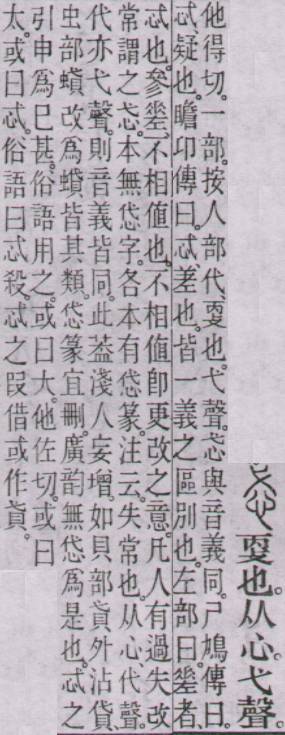 㪅也。从心。弋聲。
他得切。一部。按人部代、㪅也。弋聲。忒與音義同。尸鳩傳曰。
忒、疑也。瞻卬傳曰。忒、差也。皆一義之區別也。左部曰。𢀩者、
忒也。參𢀩、不相値也。不相値卽更改之意。凡人有過失改
常謂之忒。本無𢘋字。各本有𢘋篆。注云。失常也。从心代聲。
代亦弋聲。則音義皆同。此葢淺人妄增。如貝部貣外沾貸、
虫部蟘改爲皆其類。𢘋篆宜刪。廣韵無𢘋爲是也。忒之
引申爲已甚。俗語用之。或曰大。他佐切。或曰
太。或曰忒。俗語曰忒殺。忒之叚借或作貣。